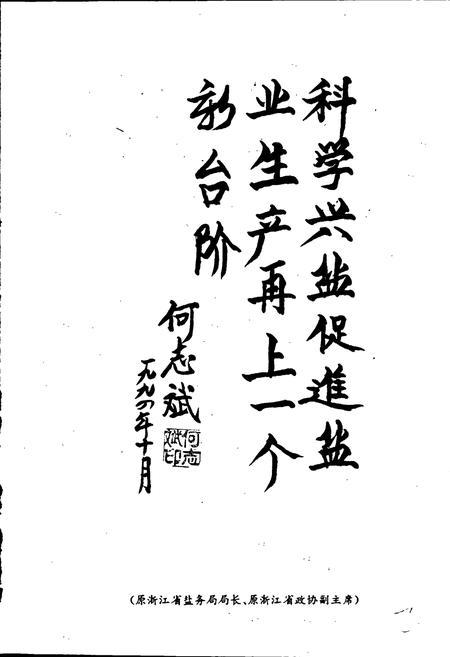 科学兴盐促進盐
业生产再上一个
新台阶
何志斌
一九九四年十月
何志斌印
（原浙江省盐务局局长、原浙江省政协副主席）